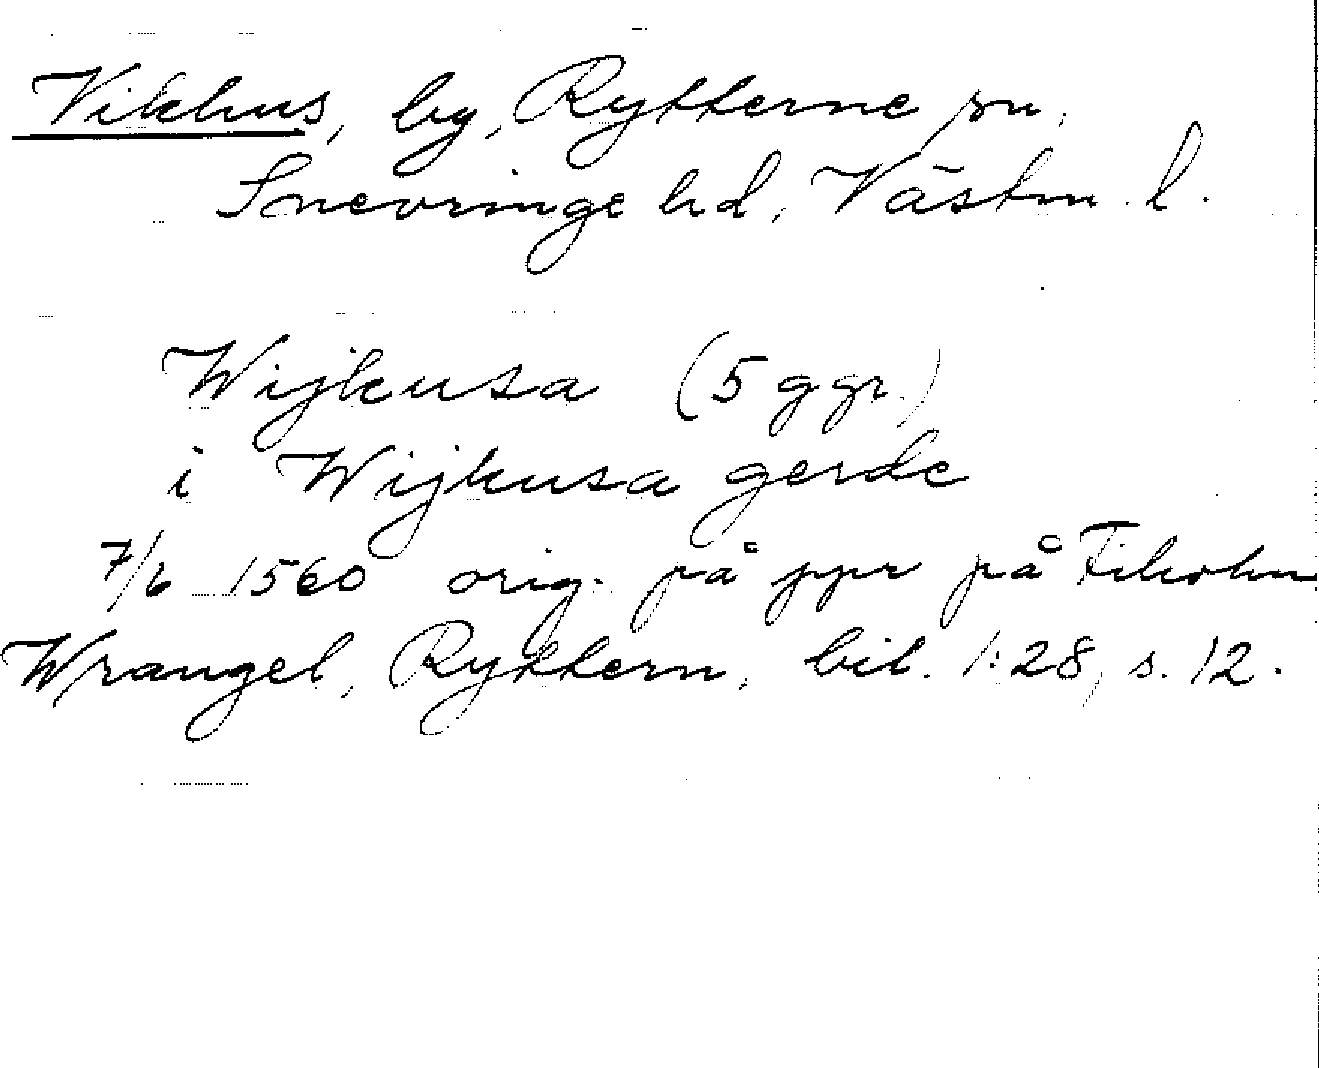 Vikhus, by, Rytterne sn,
Snevringe hd, Västm. l.
Wijkusa (5 ggr.)
i Wijkusa gerde
7/6 1560 orig. på ppr på Fiholm
Wrangel, Ryttern, bil. 1:28, s. 12.